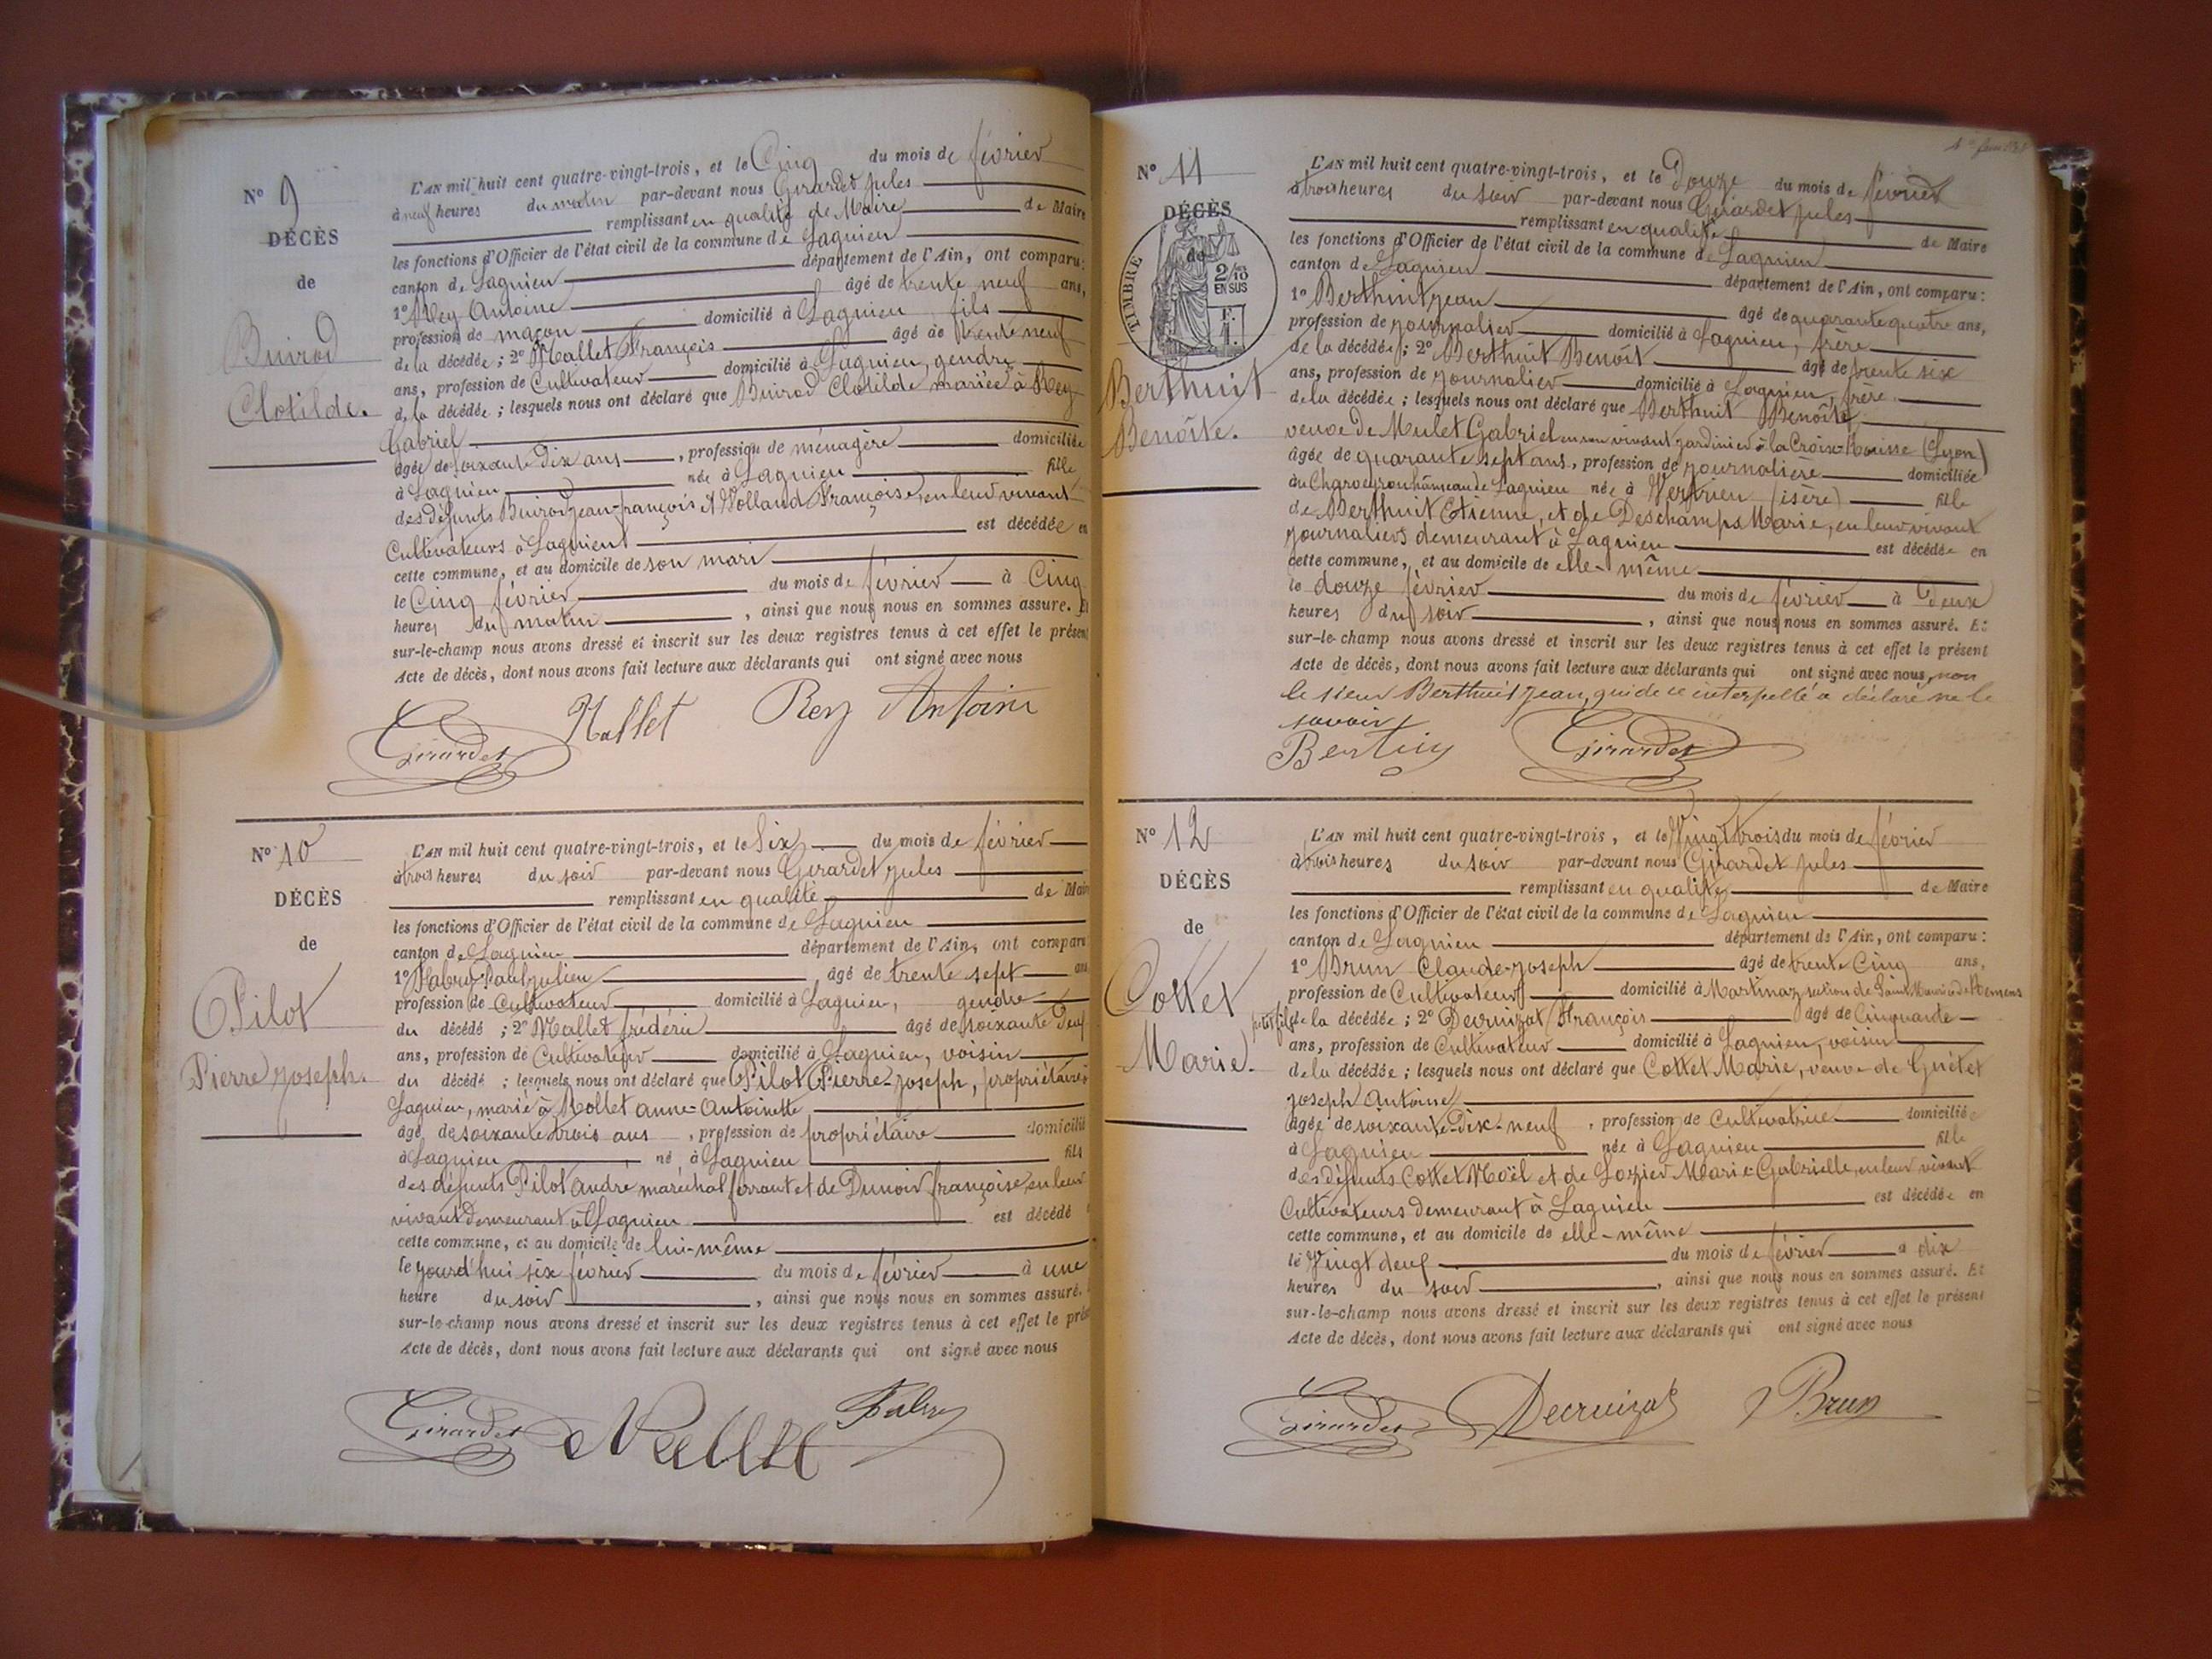 N° 9
DÉCÈS
de
Buirod
Clotilde.
L'AN mil huit cent quatre-vingt-trois, et le Cinq du mois de février
à neuf heures du matin par-devant nous Girardet Jules
remplissant en qualité de Maire de Maire
les fonctions d'Officier de l'état civil de la commune de Lagnieu
canton de Lagnieu département de l'Ain, ont comparu:
1° Rey Antoine âgé de trente neuf ans,
profession de maçon domicilié à Lagnieu fils
de la décédée; 2° Mallet François âgé de trente neuf
ans, profession de Cultivateur domicilié à Lagnieu, gendre
de la décédée; lesquels nous ont déclaré que Buirod Clotilde mariée à Rey
Gabriel
âgée de soixante dix ans, profession de ménagère domiciliée
à Lagnieu née à Lagnieu fille
des défunts Buirod Jean-françois et Rolland Françoise, en leur vivant
Cultivateurs à Lagnieu est décédée en
cette commune, et au domicile de son mari
le Cinq février du mois de février à Cinq
heures du matin, ainsi que nous nous en sommes assuré. Et
sur-le-champ nous avons dressé et inscrit sur les deux registres tenus à cet effet le présent
Acte de décès, dont nous avons fait lecture aux déclarants qui ont signé avec nous
Girardet Mallet Rey Antoine
N° 10
DÉCÈS
de
Pilot
Pierre Joseph.
L'AN mil huit cent quatre-vingt-trois, et le Six du mois de février
à trois heures du soir par-devant nous Girardet Jules
remplissant en qualité de Maire
les fonctions d'Officier de l'état civil de la commune de Lagnieu
canton de Lagnieu département de l'Ain, ont comparu
1° Fabry Paul Julien âgé de trente sept ans
profession de Cultivateur domicilié à Lagnieu, gendre
du décédé; 2° Mallet frédéric âgé de soixante deux
ans, profession de Cultivateur domicilié à Lagnieu, voisin
du décédé; lesquels nous ont déclaré que Pilot Pierre-Joseph, propriétaire
Lagnieu, marié à Rollet Anne-Antoinette
âgé de soixante trois ans, profession de propriétaire domicilié
à Lagnieu né à Lagnieu fils
des défunts Pilot André maréchal ferrant et de Dunoir françoise, en leur
vivant demeurant à Lagnieu est décédé
cette commune, et au domicile de lui-même
le jourd'hui six février du mois de février à une
heure du soir, ainsi que nous nous en sommes assuré.
sur-le-champ nous avons dressé et inscrit sur les deux registres tenus à cet effet le prés
Acte de décès, dont nous avons fait lecture aux déclarants qui ont signé avec nous
Girardet Mallet Fabry
N° 11
DÉCÈS
de
TIMBRE
2/10
EN SUS
Berthuit
Benoîte.
L'AN mil huit cent quatre-vingt-trois, et le Douze du mois de février
à trois heures du soir par-devant nous Girardet Jules
remplissant en qualité de Maire
les fonctions d'Officier de l'état civil de la commune de Lagnieu
canton de Lagnieu département de l'Ain, ont comparu:
1° Berthuit Jean âgé de quarante quatre ans,
profession de journalier domicilié à Lagnieu, frère
de la décédée; 2° Berthuit Benoit âgé de trente six
ans, profession de journalier domicilié à Lagnieu, frère
de la décédée; lesquels nous ont déclaré que Berthuit Benoîte
veuve de Mulet Gabriel en son vivant jardinier à la Croix-Rousse (Lyon)
âgée de quarante sept ans, profession de journalière domiciliée
au Charveyron hameau de Lagnieu née à Vertrieu (isère) fille
de Berthuit Etienne, et de Deschamps Marie, en leur vivant
journaliers demeurant à Lagnieu est décédée en
cette commune, et au domicile de elle-même
le douze février du mois de février à Deux
heures du soir, ainsi que nous nous en sommes assuré. Et
sur-le-champ nous avons dressé et inscrit sur les deux registres tenus à cet effet le présent
Acte de décès, dont nous avons fait lecture aux déclarants qui ont signé avec nous, non
le sieur Berthuit Jean, qui de ce interpellé a déclaré ne le
savoir
Girardet
N° 12
DÉCÈS
de
Cottet
Marie.
L'AN mil huit cent quatre-vingt-trois, et le Vingt trois du mois de février
à trois heures du soir par-devant nous Girardet Jules
remplissant en qualité de Maire
les fonctions d'Officier de l'état civil de la commune de Lagnieu
canton de Lagnieu département de l'Ain, ont comparu:
1° Brun Claude-Joseph âgé de trente Cinq ans,
profession de Cultivateur domicilié à Martinaz section de Saint Maurice de Rémens
petit fils de la décédée; 2° Decruizat François âgé de Cinquante
ans, profession de Cultivateur domicilié à Lagnieu, voisin
de la décédée; lesquels nous ont déclaré que Cottet Marie, veuve de Guétet
Joseph Antoine
âgée de soixante-Dix-neuf, profession de Cultivatrice domiciliée
à Lagnieu née à Lagnieu fille
des défunts Cottet Noël et de Lozier Marie-Gabrielle, en leur vivant
Cultivateurs demeurant à Lagnieu est décédée en
cette commune, et au domicile de elle-même
le Vingt deux du mois de février à dix
heures du soir, ainsi que nous nous en sommes assuré. Et
sur-le-champ nous avons dressé et inscrit sur les deux registres tenus à cet effet le présent
Acte de décès, dont nous avons fait lecture aux déclarants qui ont signé avec nous
Girardet Decruizat Brun